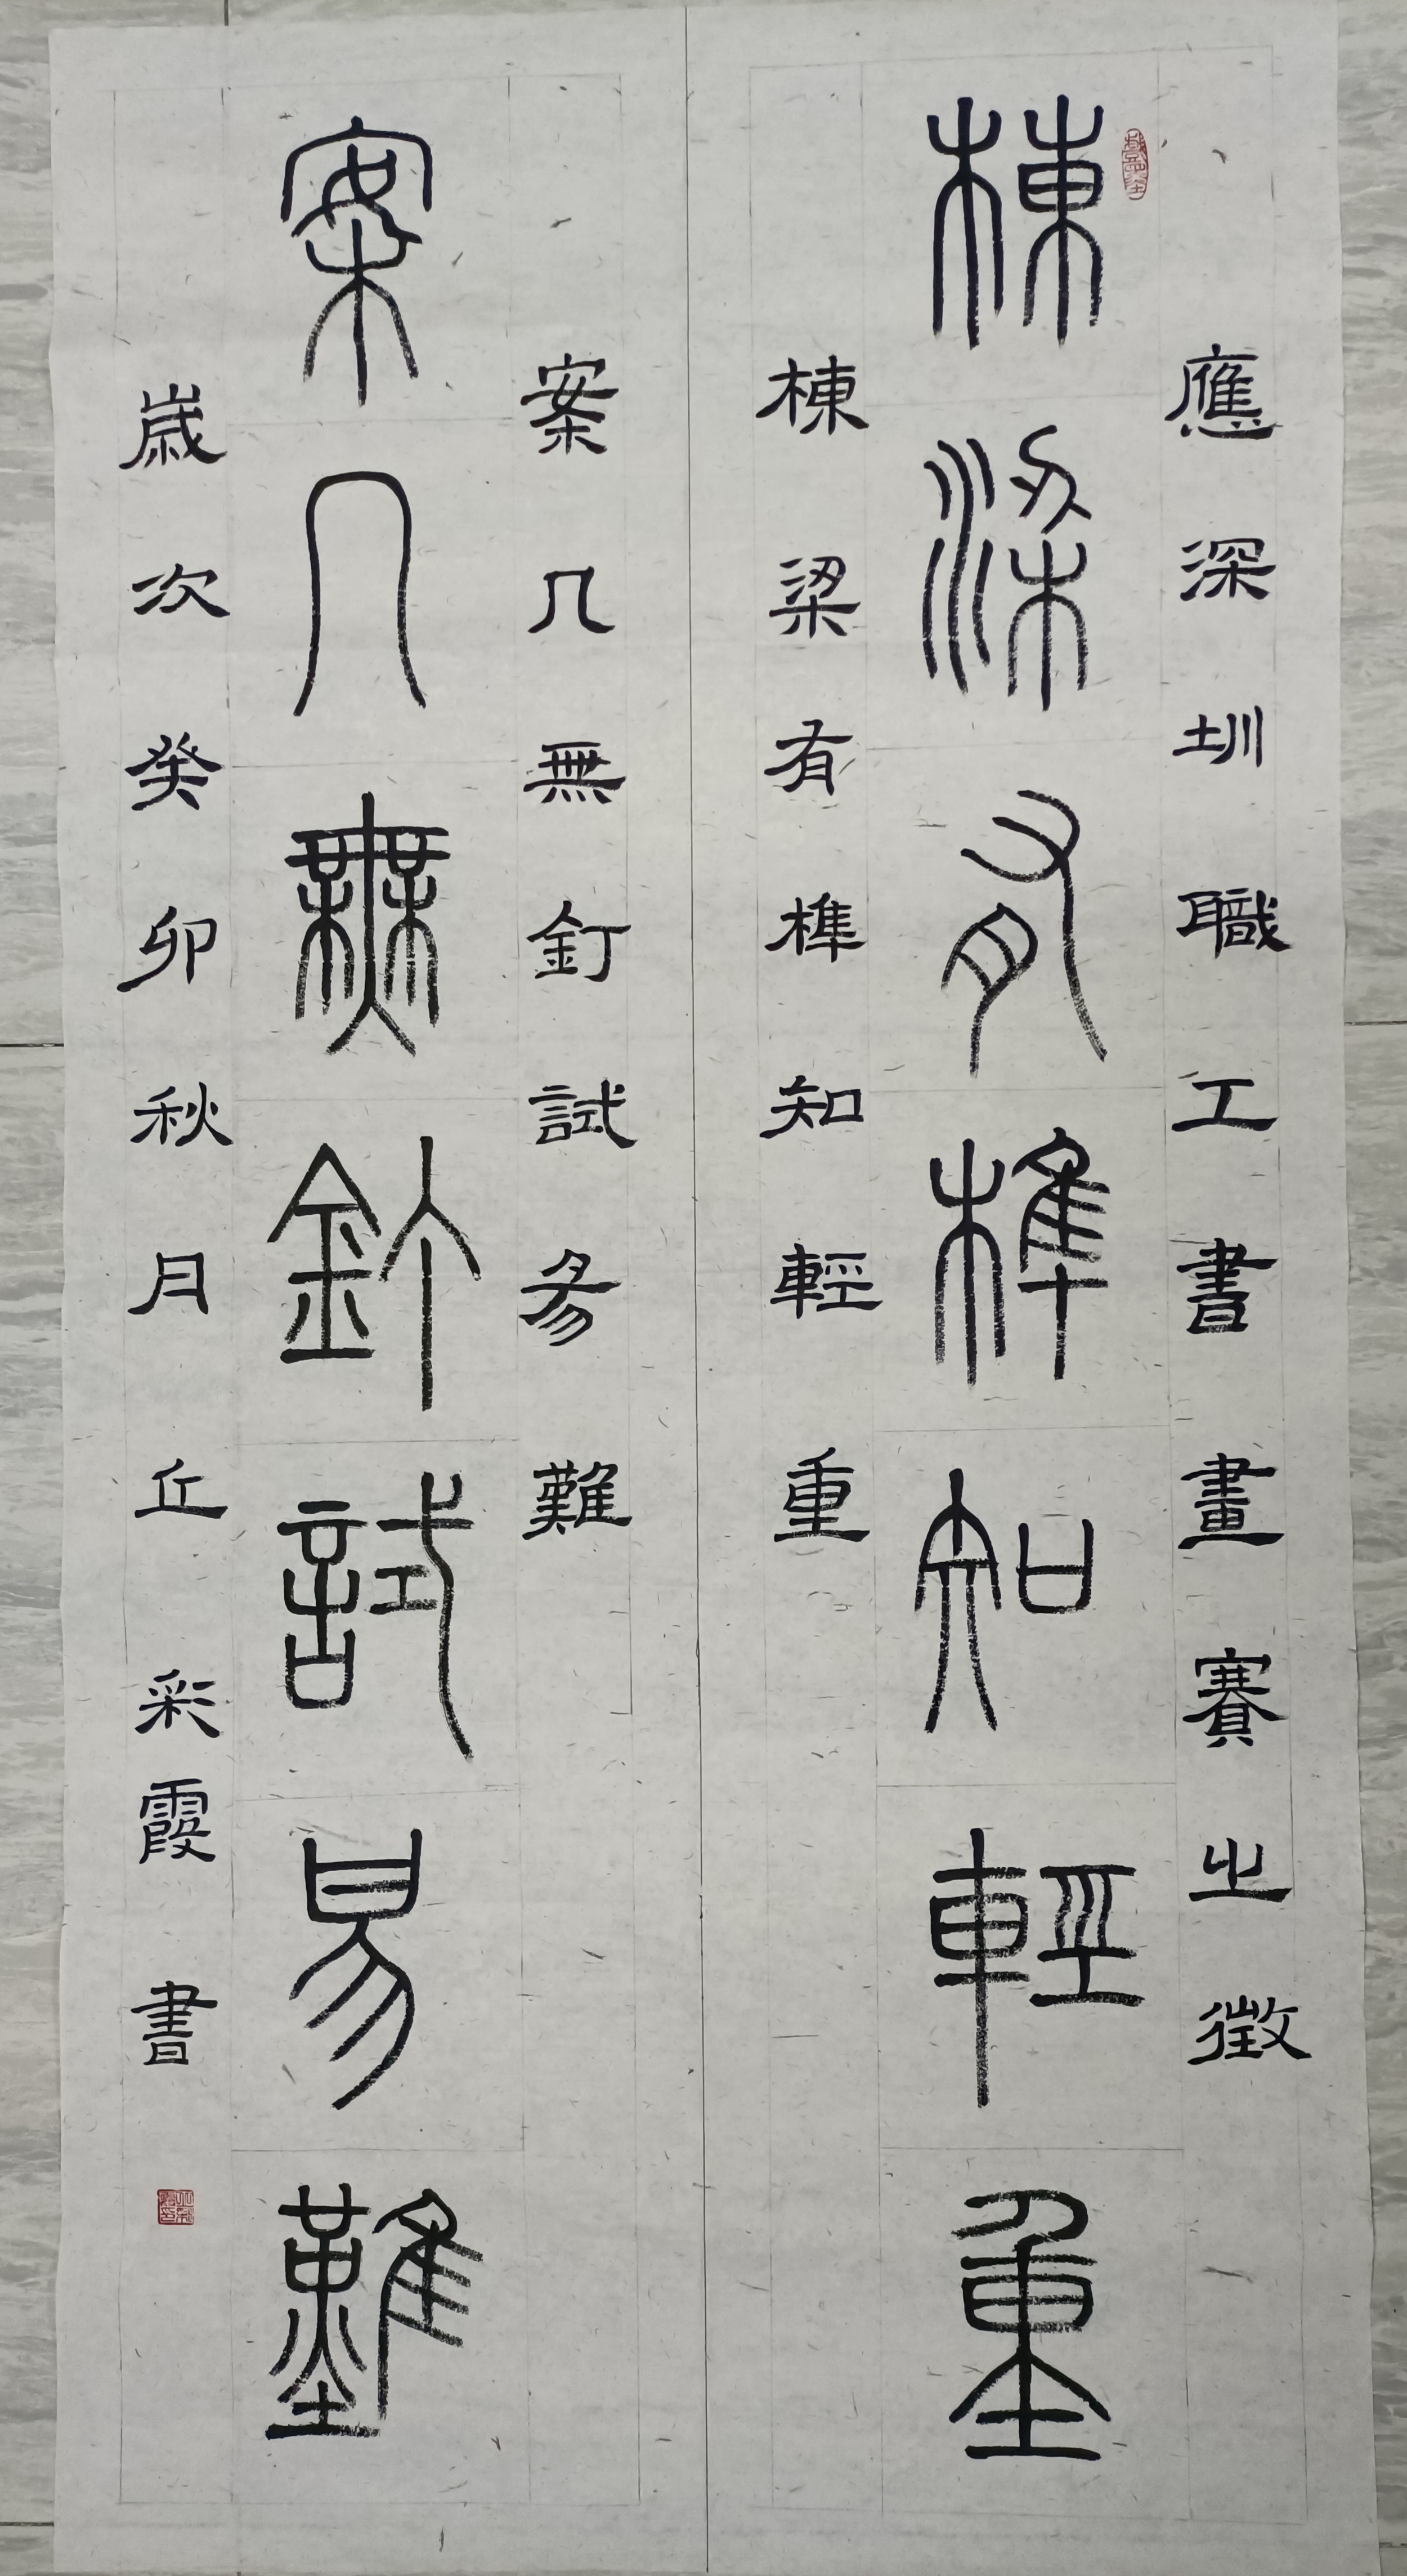 應深圳職工書畫賽之徵
棟梁有榫知輕重
棟梁有榫知輕重
案几無釘試易難
案几無釘試易難
歲次癸卯秋月丘彩霞書